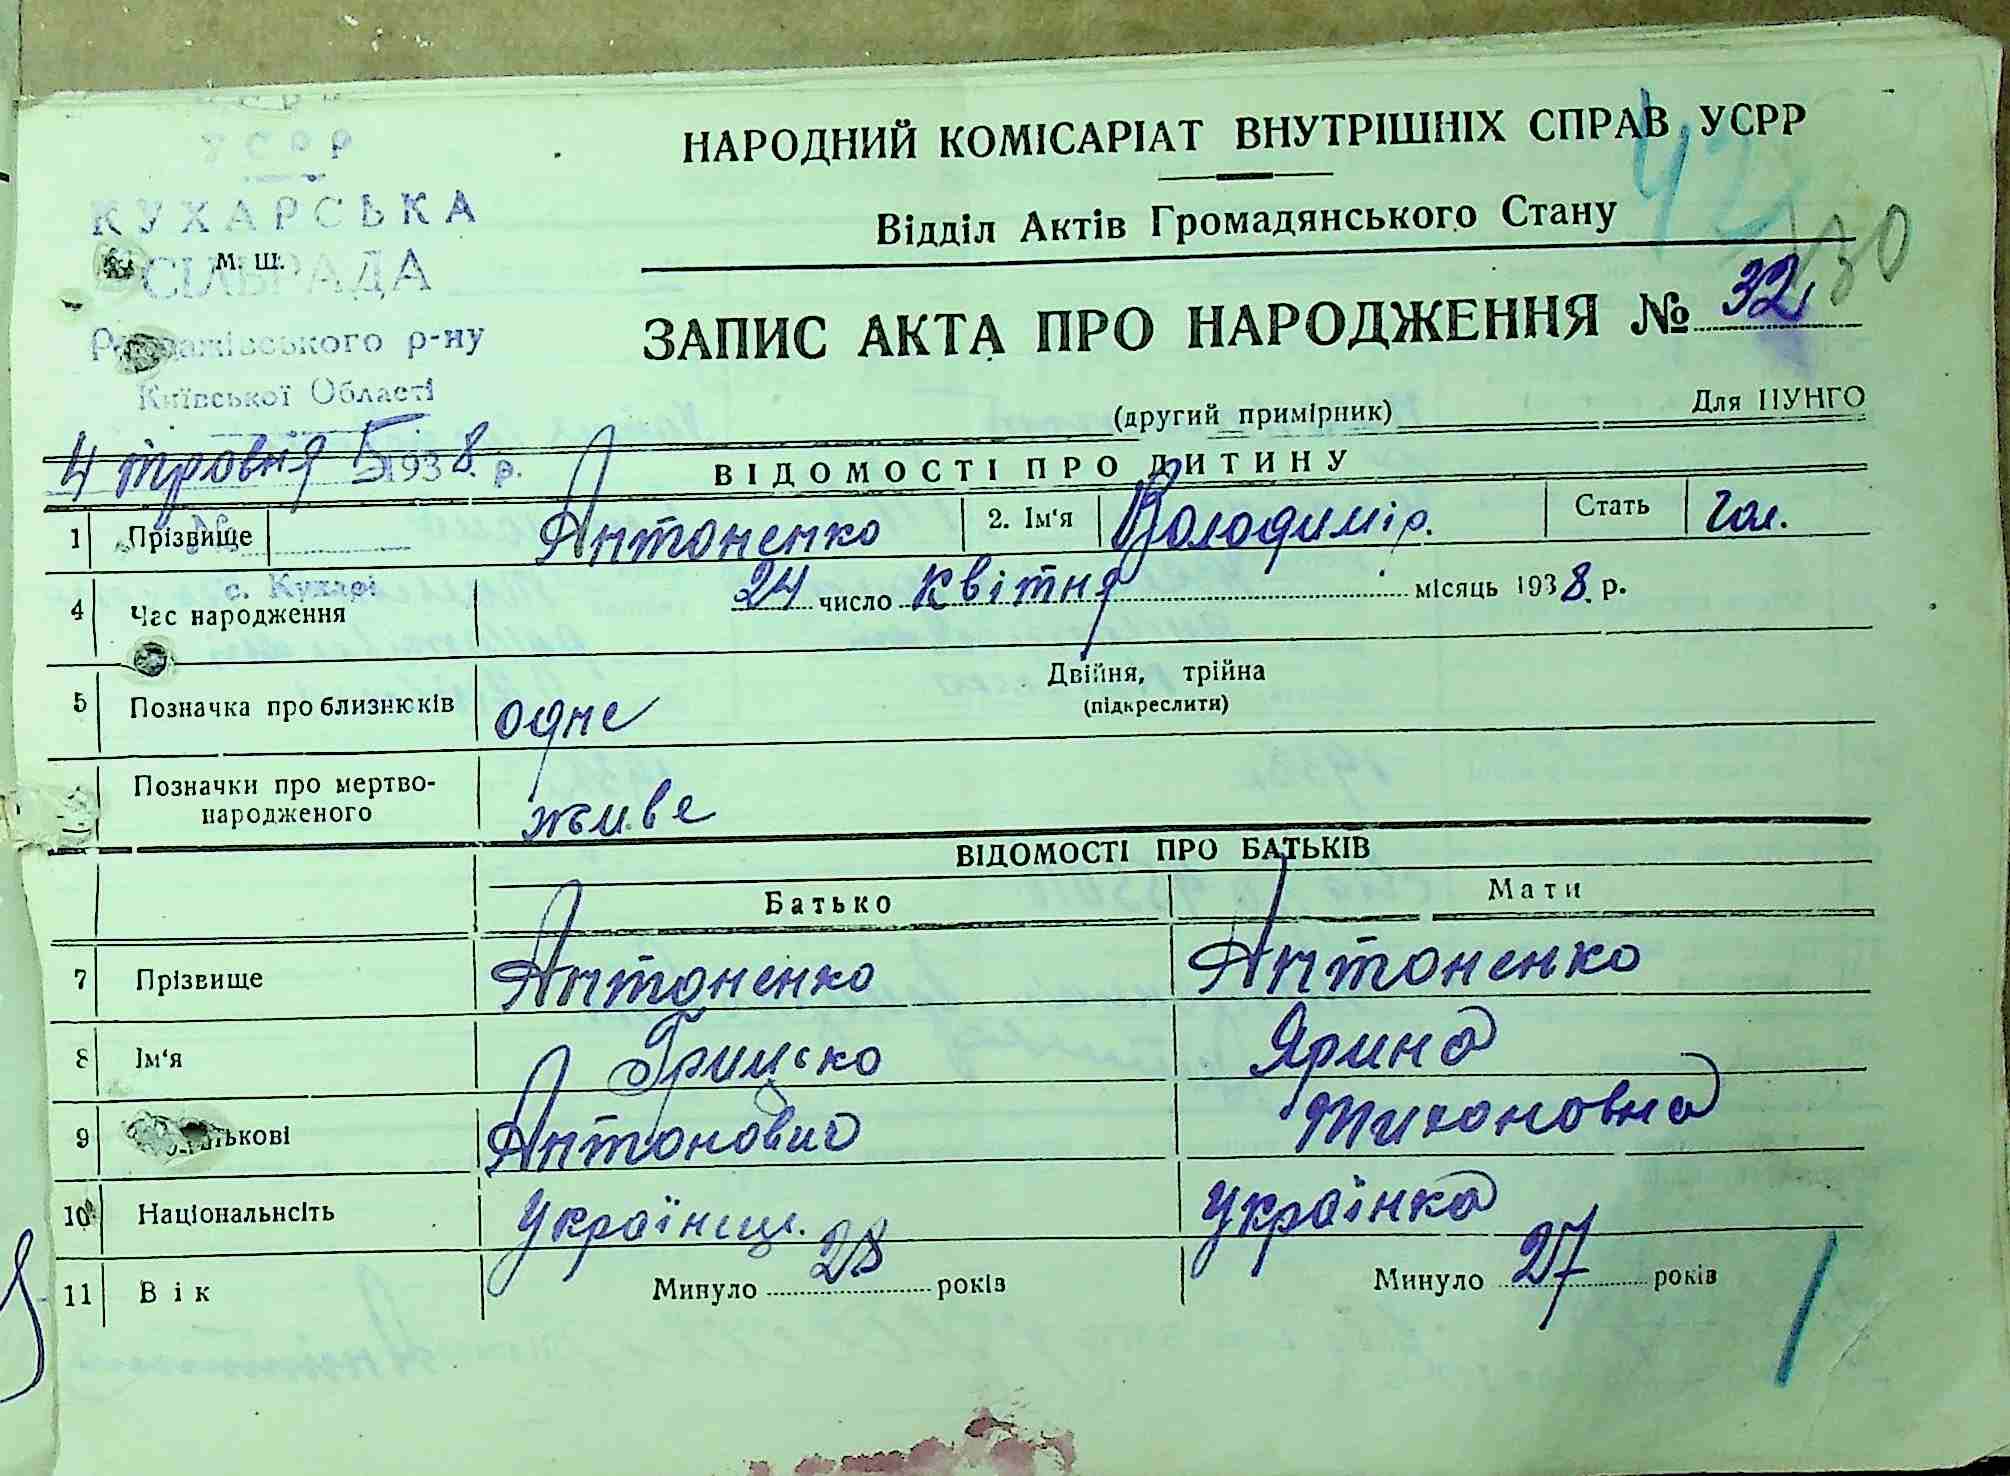 УСРР
КУХАРСЬКА
СІЛЬРАДА
м. ш.
р-ну
Київської Області
4 травня 1938 р.
с. Кухарі
НАРОДНИЙ КОМІСАРІАТ ВНУТРІШНІХ СПРАВ УСРР
Відділ Актів Громадянського Стану
42
30
ЗАПИС АКТА ПРО НАРОДЖЕННЯ № 32
(другий примірник) Для ЦУНГО
ВІДОМОСТІ ПРО ДИТИНУ
1 Прізвище Антоненко 2. Ім'я Володимір. Стать чол.
4 Час народження 24 число квітня місяць 1938 р.
5 Позначка про близнюків одне Двійня, трійна
(підкреслити)
Позначки про мертво-
народженого живе
ВІДОМОСТІ ПРО БАТЬКІВ
Батько Мати
7 Прізвище Антоненко Антоненко
8 Ім'я Грицько Ярина
9 Антонович Тихоновна
10 Національнсіть Українец. Українка
11 Вік Минуло 28 років Минуло 27 років